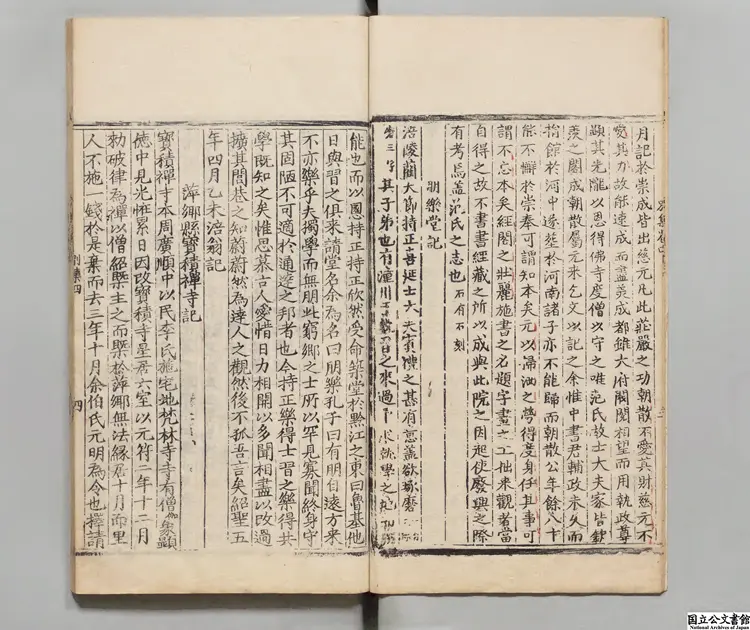 月記於崇成皆出慈元凡此莊嚴之功朝散不愛其財慈元不
愛其力故能速成而盡美成都雖大府閣閣相望而用執政尊
顯其先隴以恩得佛寺度僧以守之唯范氏故士大夫家皆欽
羨之閣成朝散屬元來乞文以記之余惟中書君輔政未久而
捐館於河中遂葬於河南諸子亦不能歸而朝散公年餘八十
能不懈於崇奉可謂知本矣元以掃洒之勞得度身任其事可
謂不忘本矣經閣之壯麗施書之名題字畫之工拙來觀者當
自得之故不書書經藏之所以成與此院之因起使廢興之際
有考焉蓋范氏之志也 石有不刻
朋樂堂記
涪陵藺大節持正喜延士大夫賓禮之甚有意蓋欲琢磨
其子弟也有潼川 之來過 學之
能也而以恩持正持正欣然受命築堂於黔江之東曰魯基他
日與習之俱來請堂名余為名曰朋樂孔子曰有朋自遠方來
不亦樂乎夫獨學而無朋此窮鄉之士所以罕見寡聞終身守
其固陋不可適於通邃之邦者也今持正樂得士習之樂得共
學既知之矣惟思慕古人愛惜日力相開以多聞相盡以改過
擴其閭巷之知蔚蔚然為達人之觀然後不孤吾言矣紹聖五
年四月乙未涪翁記
萍鄉縣寶積禪寺記
寶積禪寺本周廣順中以民李氏施宅地梵林寺寺有僧伽象顯
德中見光怪累日因改寶積寺星居六室以元符二年十二月
勑破律為禪以僧紹槩主之而槩於萍鄉無法緣居十月而里
人不施一錢於是棄而去三年十月余伯氏元明為令也擇請
別集四
四
国立公文書館
National Archives of Japan